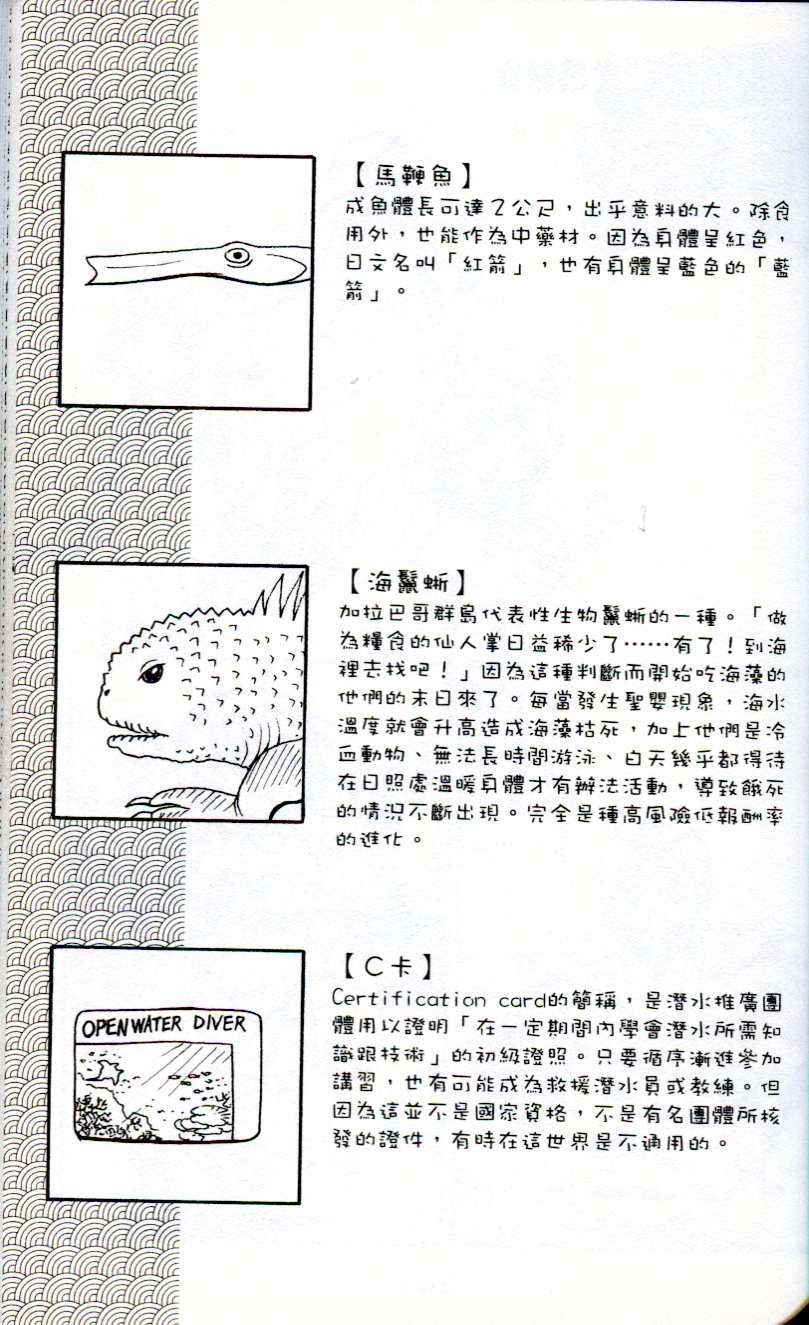 【馬鞭魚】
成魚體長可達2公尺，出乎意料的大。除食
用外，也能作為中藥材。因為身體呈紅色，
日文名叫「紅箭」，也有身體呈藍色的「藍
箭」。
【海鬣蜥】
加拉巴哥群島代表性生物鬣蜥的一種。「做
為糧食的仙人掌日益稀少了……有了！到海
裡去找吧！」因為這種判斷而開始吃海藻的
他們的末日來了。每當發生聖嬰現象，海水
溫度就會升高造成海藻枯死，加上他們是冷
血動物、無法長時間游泳、白天幾乎都得待
在日照處溫暖身體才有辦法活動，導致餓死
的情況不斷出現。完全是種高風險低報酬率
的進化。
OPEN WATER DIVER
【C卡】
Certification card的簡稱，是潛水推廣團
體用以證明「在一定期間內學會潛水所需知
識跟技術」的初級證照。只要循序漸進參加
講習，也有可能成為救援潛水員或教練。但
因為這並不是國家資格，不是有名團體所核
發的證件，有時在這世界是不通用的。